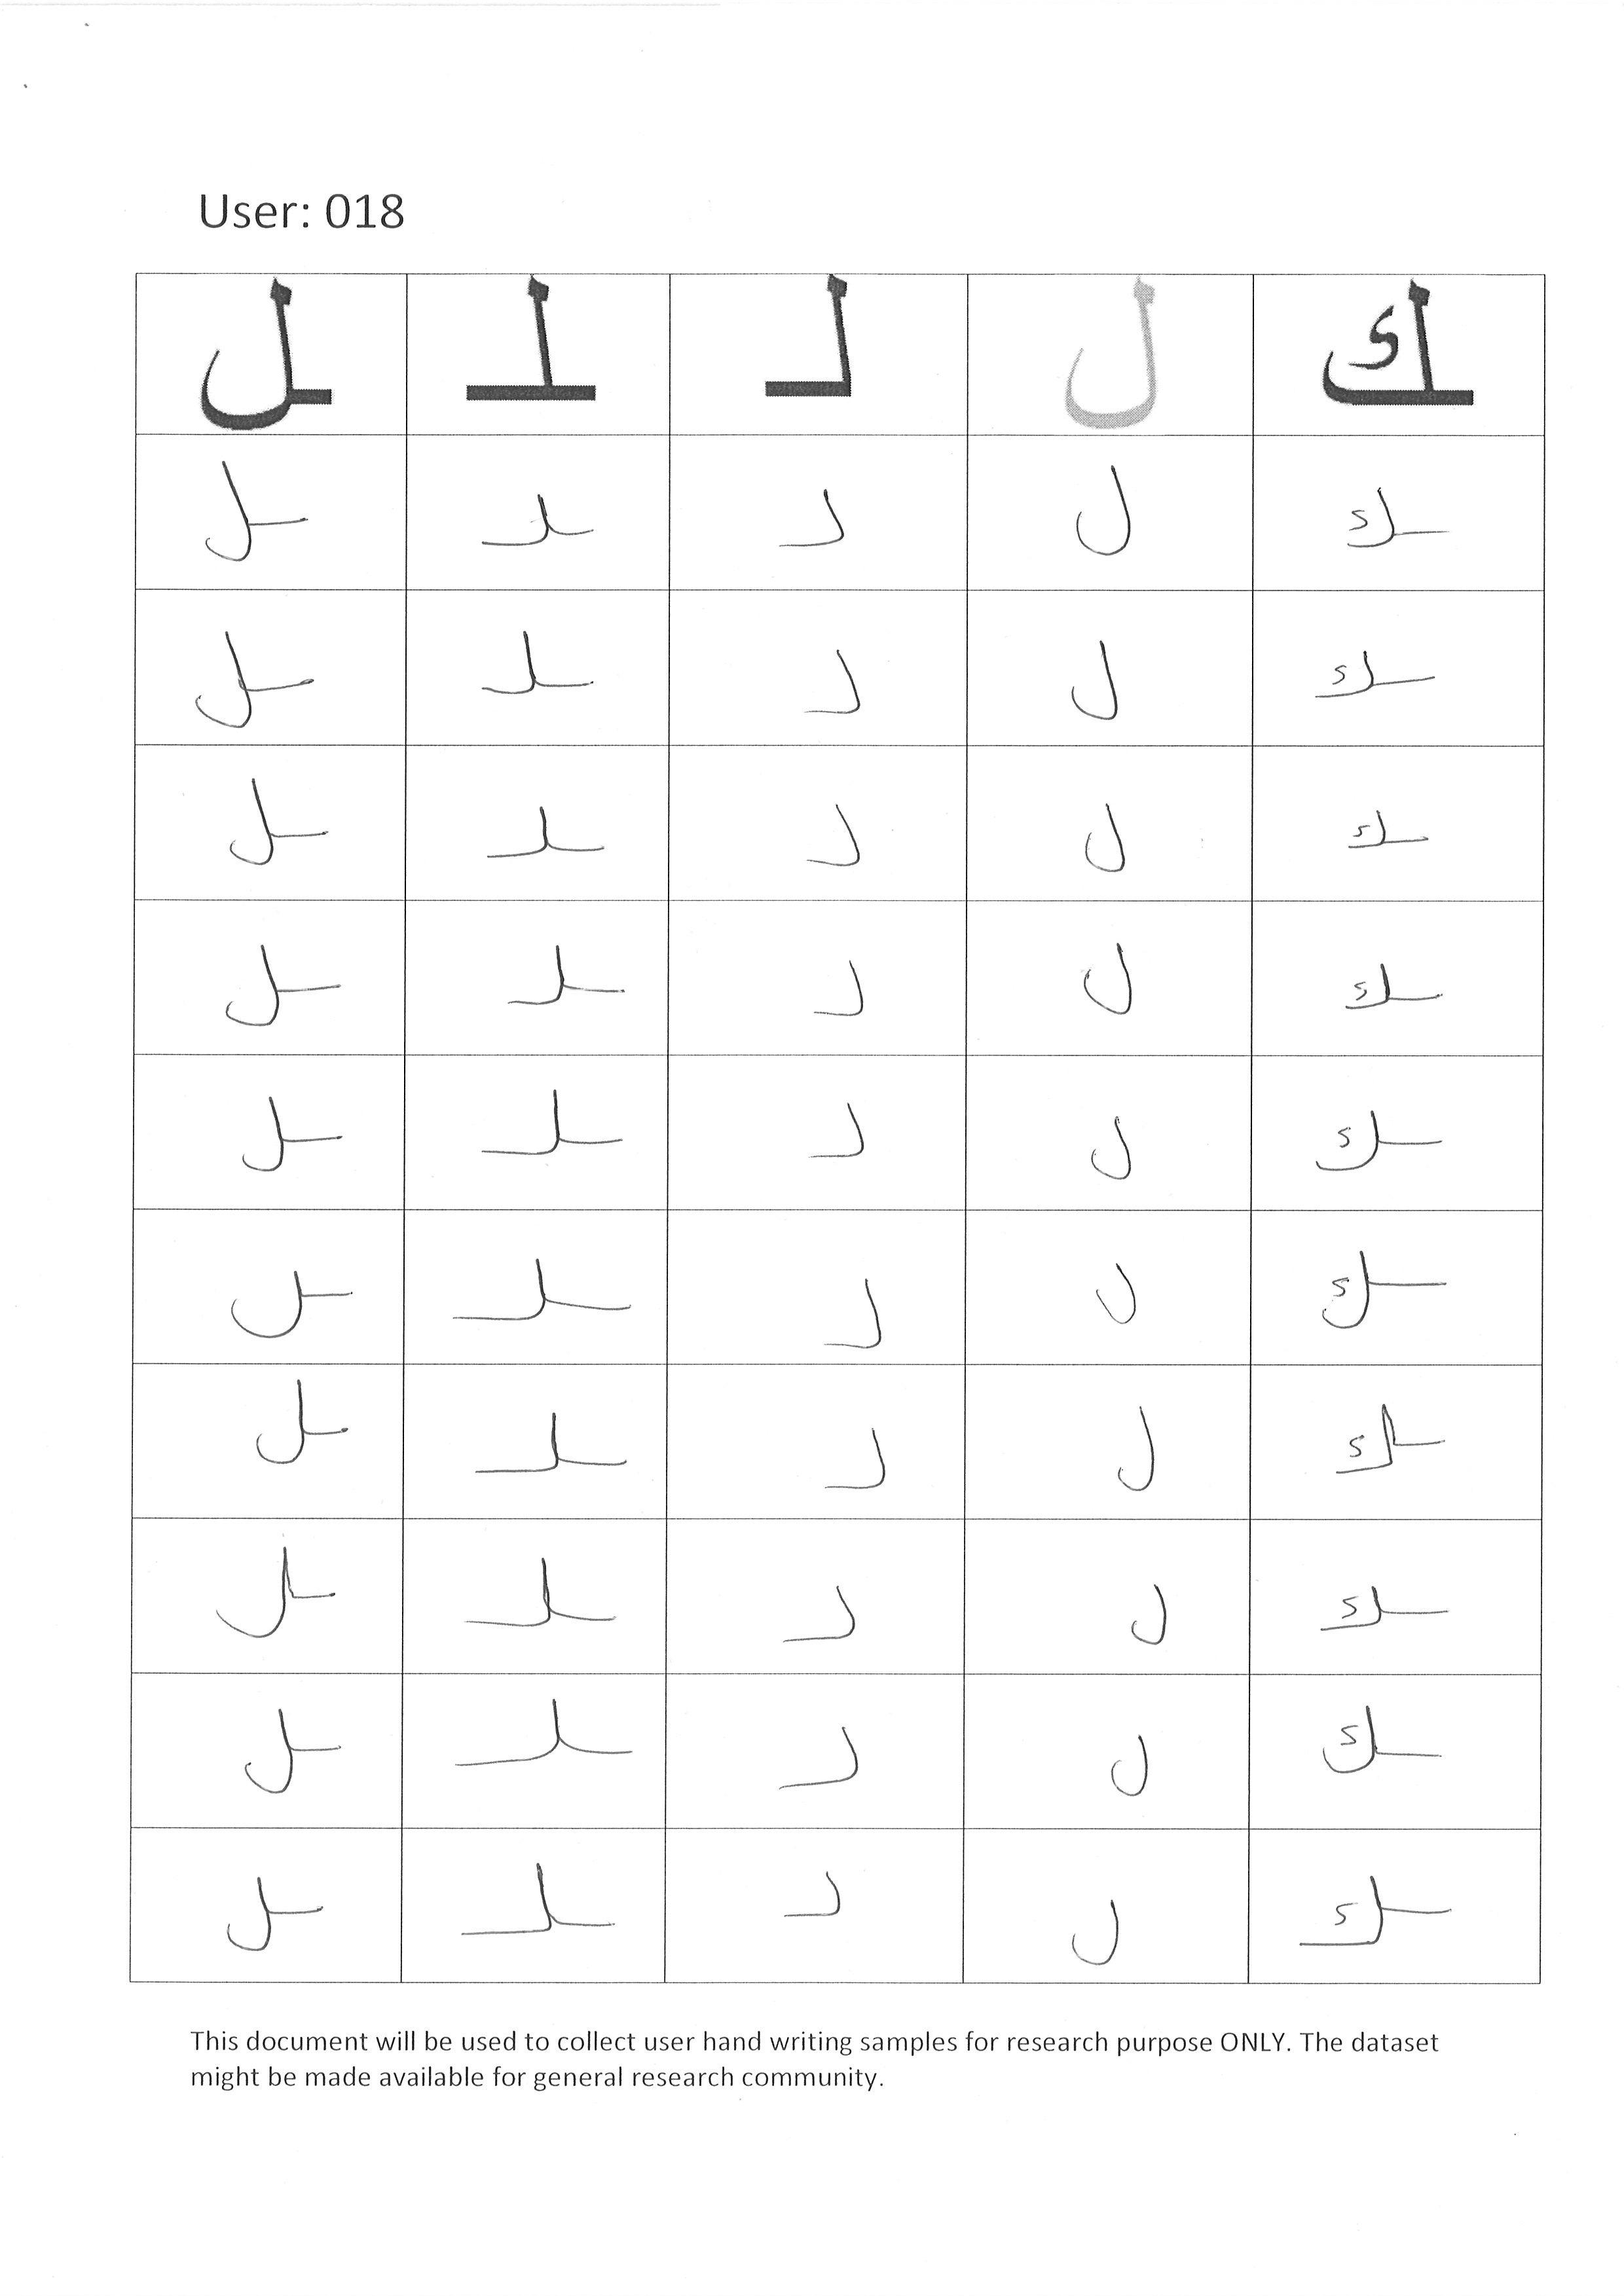 User: 018
ـل ـلـ لـ ل ـك
ـل ـلـ لـ ل ـك
ـل ـلـ لـ ل ـك
ـل ـلـ لـ ل ـك
ـل ـلـ لـ ل ـك
ـل ـلـ لـ ل ـك
ـل ـلـ لـ ل ـك
ـل ـلـ لـ ل ـك
ـل ـلـ لـ ل ـك
ـل ـلـ لـ ل ـك
ـل ـلـ لـ ل ـك
This document will be used to collect user hand writing samples for research purpose ONLY. The dataset
might be made available for general research community.